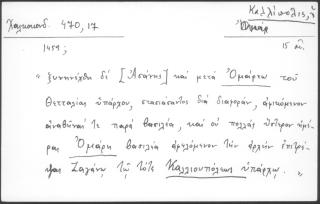 Χαλκοκονδ. 470, 17
Καλλίπολις, ἡ
Ὀμάρ
1459;
15 αἰ.
" ξυνηνέχθη δέ [Ἀσάνης] καί μετά Ὀμάρεω τοῦ
Θετταλίας ὑπάρχου, στασιάσαντος διά διαφοράν, ἀφικόμενον
ἀναβῆναί τε παρά βασιλέα, καί οὐ πολλαῖς ὕστερον ἡμέ-
ρας Ὀμάρη βασιλέα ἀφελόμενον τήν ἀρχήν ἐπιτρέ-
ψαι Ζαγάνῳ τῷ τότε Καλλιουπόλεως ὑπάρχῳ. "